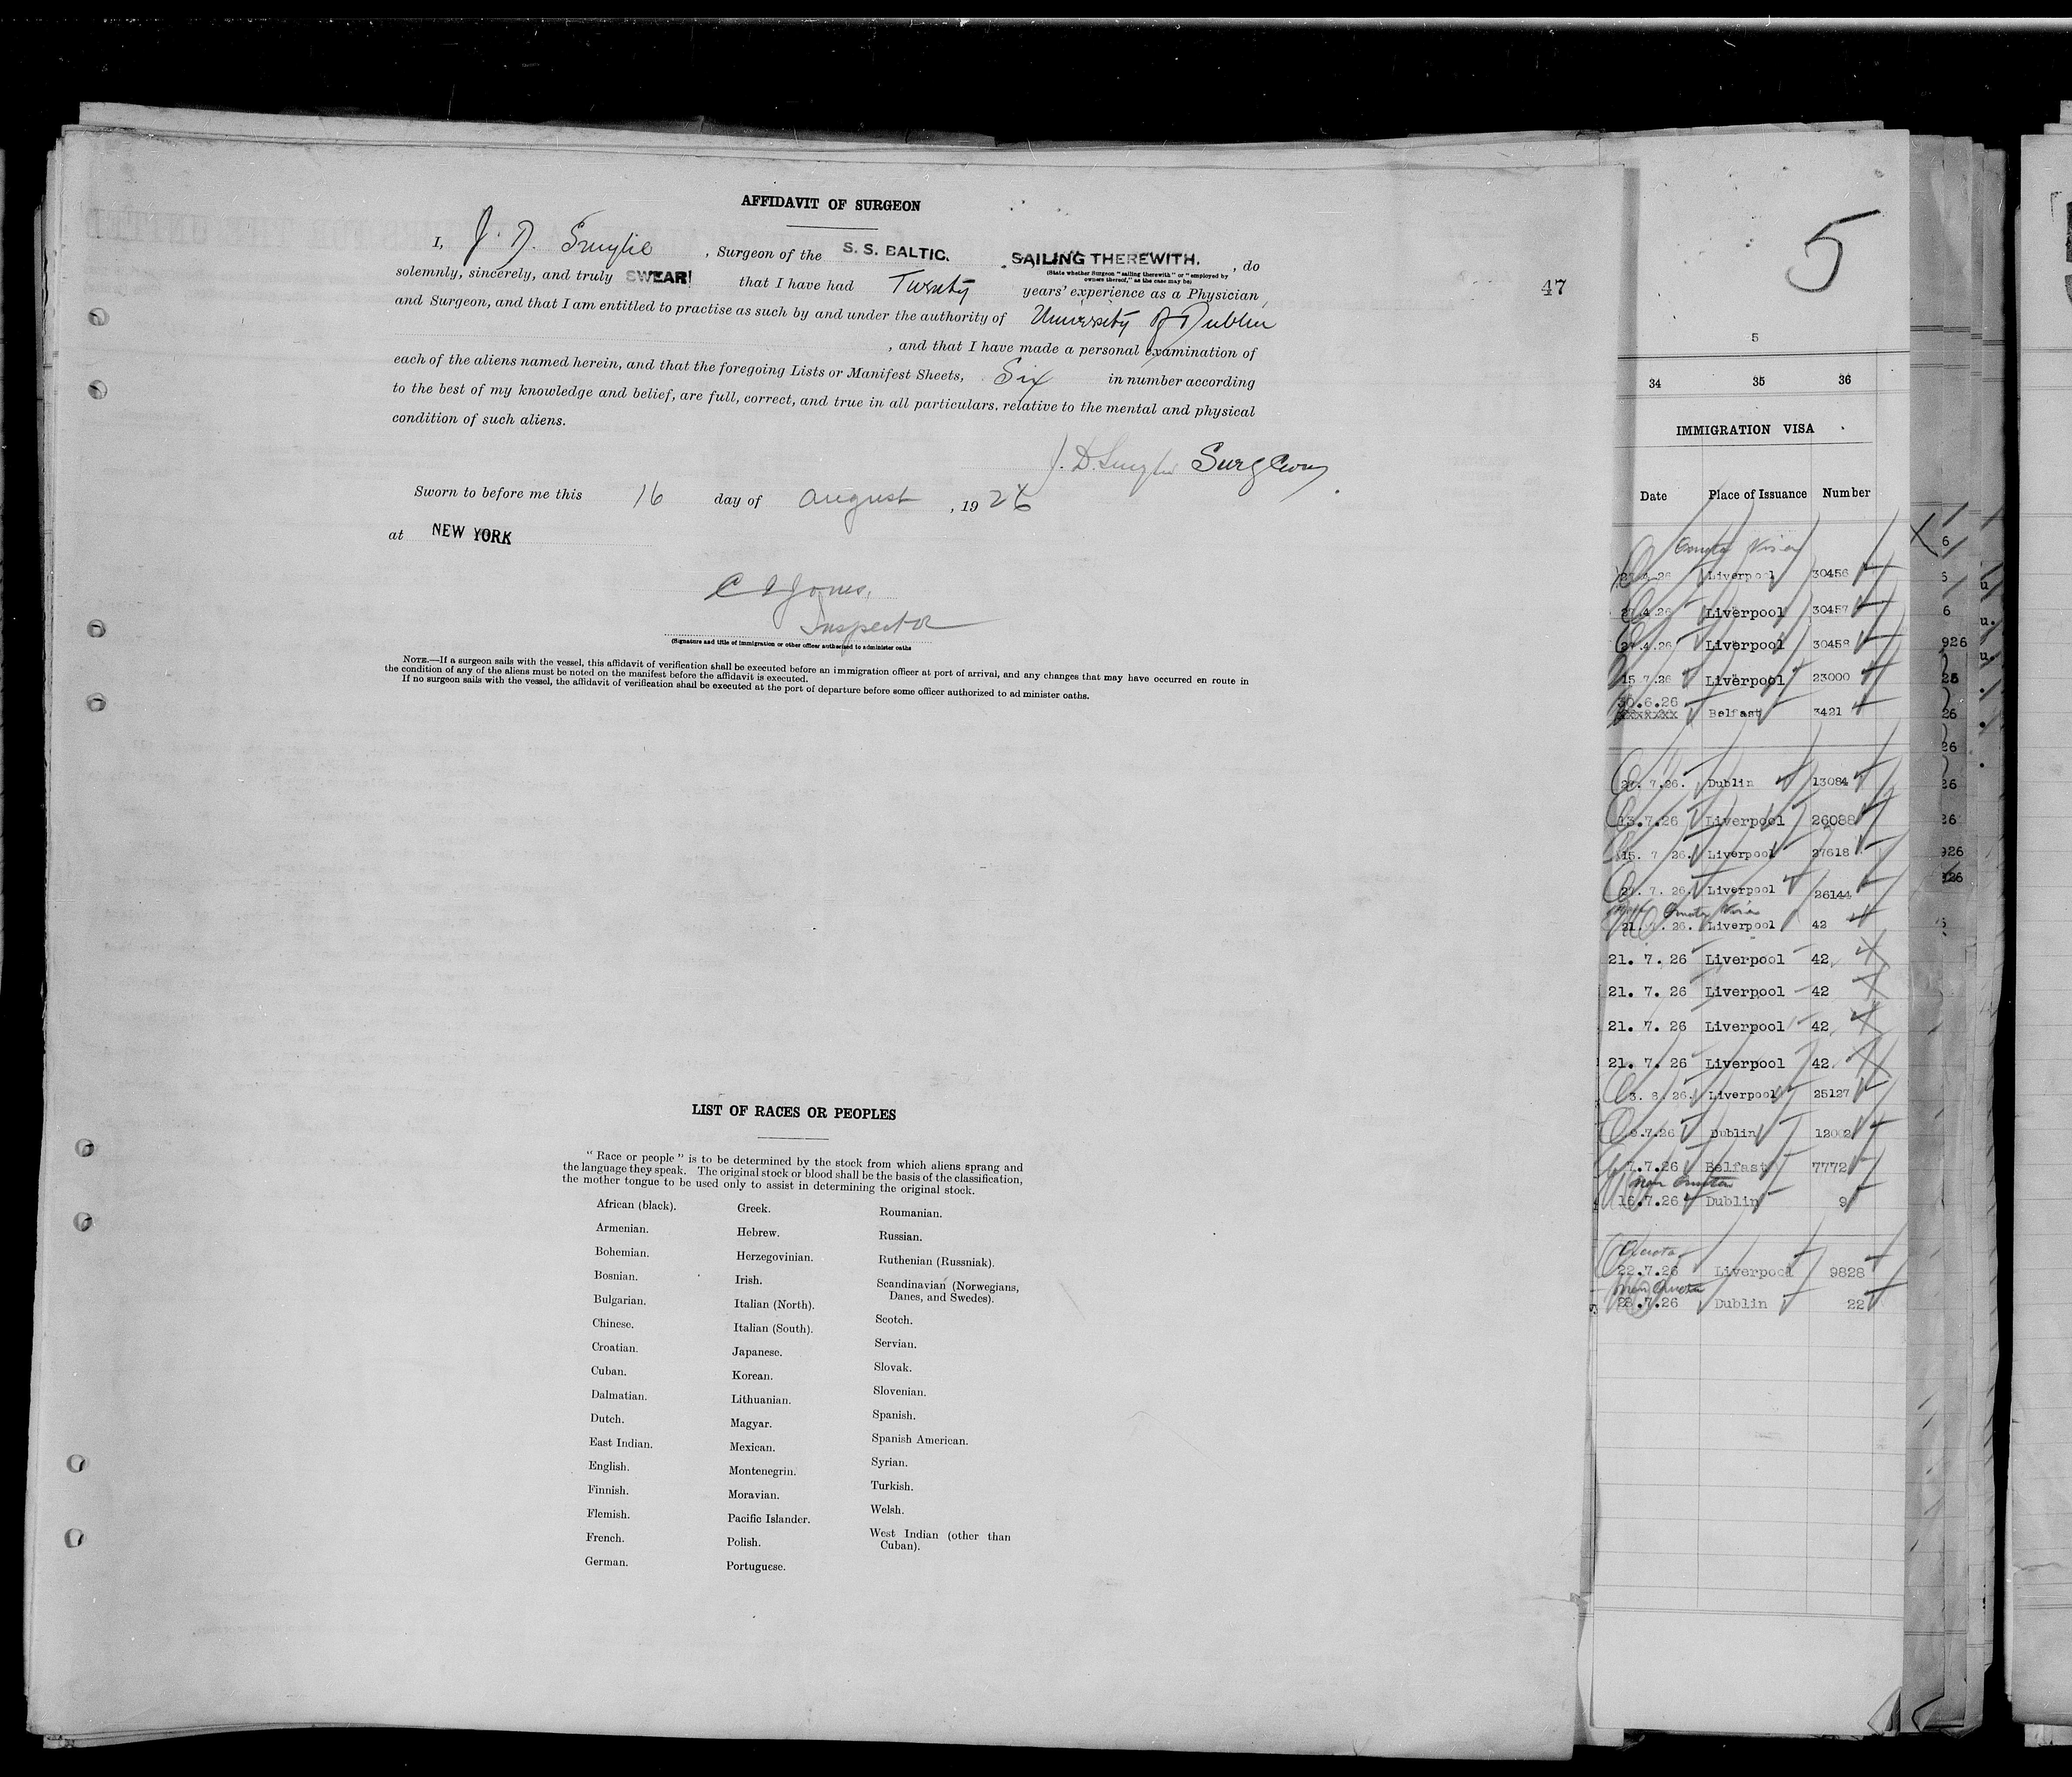 AFFIDAVIT OF SURGEON
I, J. D. Smylie, Surgeon of the S. S. BALTIC. SAILING THEREWITH., do
(State whether Surgeon "sailing therewith" or "employed by owners thereof," as the case may be)
solemnly, sincerely, and truly SWEAR! that I have had Twenty years' experience as a Physician
and Surgeon, and that I am entitled to practise as such by and under the authority of University of Dublin
, and that I have made a personal examination of
each of the aliens named herein, and that the foregoing Lists or Manifest Sheets, Six in number according
to the best of my knowledge and belief, are full, correct, and true in all particulars, relative to the mental and physical
condition of such aliens.
J. D. Smylie Surgeon
Sworn to before me this 16 day of August, 1926
at NEW YORK
Jones,
Inspector
(Signature and title of immigration or other officer authorized to administer oaths
NOTE.—If a surgeon sails with the vessel, this affidavit of verification shall be executed before an immigration officer at port of arrival, and any changes that may have occurred en route in
the condition of any of the aliens must be noted on the manifest before the affidavit is executed.
If no surgeon sails with the vessel, the affidavit of verification shall be executed at the port of departure before some officer authorized to administer oaths.
47
LIST OF RACES OR PEOPLES
"Race or people" is to be determined by the stock from which aliens sprang and
the language they speak. The original stock or blood shall be the basis of the classification,
the mother tongue to be used only to assist in determining the original stock.
African (black).
Armenian.
Bohemian.
Bosnian.
Bulgarian.
Chinese.
Croatian.
Cuban.
Dalmatian.
Dutch.
East Indian.
English.
Finnish.
Flemish.
French.
German.
Greek.
Hebrew.
Herzegovinian.
Irish.
Italian (North).
Italian (South).
Japanese.
Korean.
Lithuanian.
Magyar.
Mexican.
Montenegrin.
Moravian.
Pacific Islander.
Polish.
Portuguese.
Roumanian.
Russian.
Ruthenian (Russniak).
Scandinavian (Norwegians,
Danes, and Swedes).
Scotch.
Servian.
Slovak.
Slovenian.
Spanish.
Spanish American.
Syrian.
Turkish.
Welsh.
West Indian (other than
Cuban).
5
5
34 35 36
IMMIGRATION VISA
Date Place of Issuance Number
Quota Visa
Liverpool 30456
27.4.26 Liverpool 30457
27.4.26 Liverpool 30458
15.7.26 Liverpool 23000
30.6.26
xxxxxxx Belfast 3421
7.26. Dublin 13084
13.7.26 Liverpool 26088
15. 7 26. Liverpool 27618
27. 7. 26. Liverpool 26144
Quota Visa
21. 7. 26. Liverpool 42
21. 7. 26 Liverpool 42
21. 7. 26 Liverpool 42
21. 7. 26 Liverpool 42
21. 7. 26 Liverpool 42
3. 8. 26. Liverpool 25127
.7.26 Dublin 12002
7.7.26 Belfast 7772
Non Quota
16.7.26 Dublin 9
Quota
22.7.26 Liverpool 9828
Non Quota
.7.26 Dublin 22